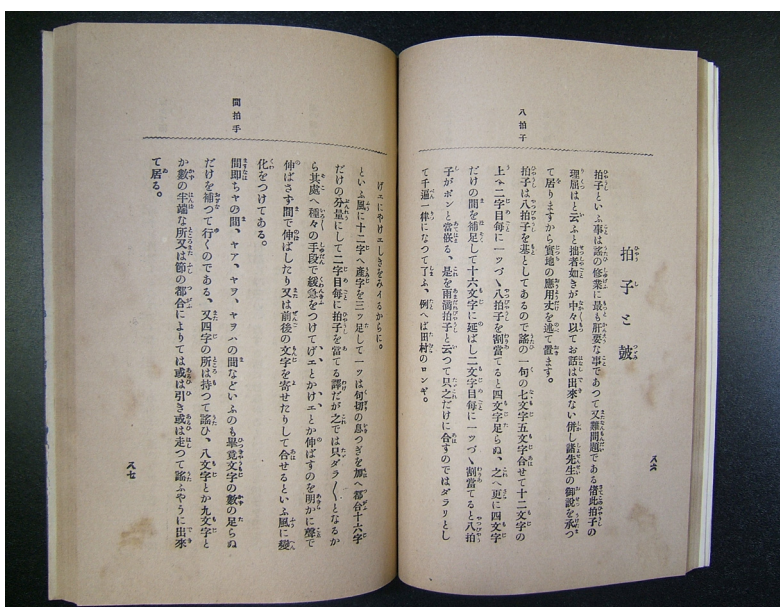 拍子と鼓
拍子といふ事は謠の修業に最も肝要な事であつて又難問題である偖此拍子の
理屈はと云ふと拙者如きが中々以てお話は出來ない併し諸先生の御說を承つ
て居りますから實地の應用丈を述て置ます。
八拍子
拍子は八拍子を基としてあるので謠の一句の七文字五文字合せて十二文字の
上へ二字目每に一ッづゝ八拍子を割當てると四文字足らぬ、之へ更に四文字
だけの間を補足して十六文字に延ばし二文字目每に一ッづゝ割當てると八拍
子がポンと當嵌る、是を雨滴拍子と云つて只之だけに合すのではダラリとし
て千遍一律になつて了ふ、例へば田村のロンギ。
八六
げェにやけェしきをみイるからに。
といふ風に十二字へ產字を三ッ足して一ッは句切の息つぎを加へ都合十六字
だけの分量にして二字目每に拍子を當てる譯だが之では只ダラ〱となるか
ら其處へ種々の手段で緩急をつけてげェとかけェとか伸ばすのを明かに聲で
伸ばさず間で伸ばしたり又は前後の文字を寄せたりして合せるといふ風に變
化をつけてある。
間拍手
間即ちヤの間、ヤア、ヤヲ、ヤヲハの間などいふのも畢竟文字の數の足らぬ
だけを補つて行くのである、又四字の所は持つて謠ひ、八文字とか九文字と
か數の半端な所又は節の都合によりては或は引き或は走つて謠ふやうに出來
て居る。
八七